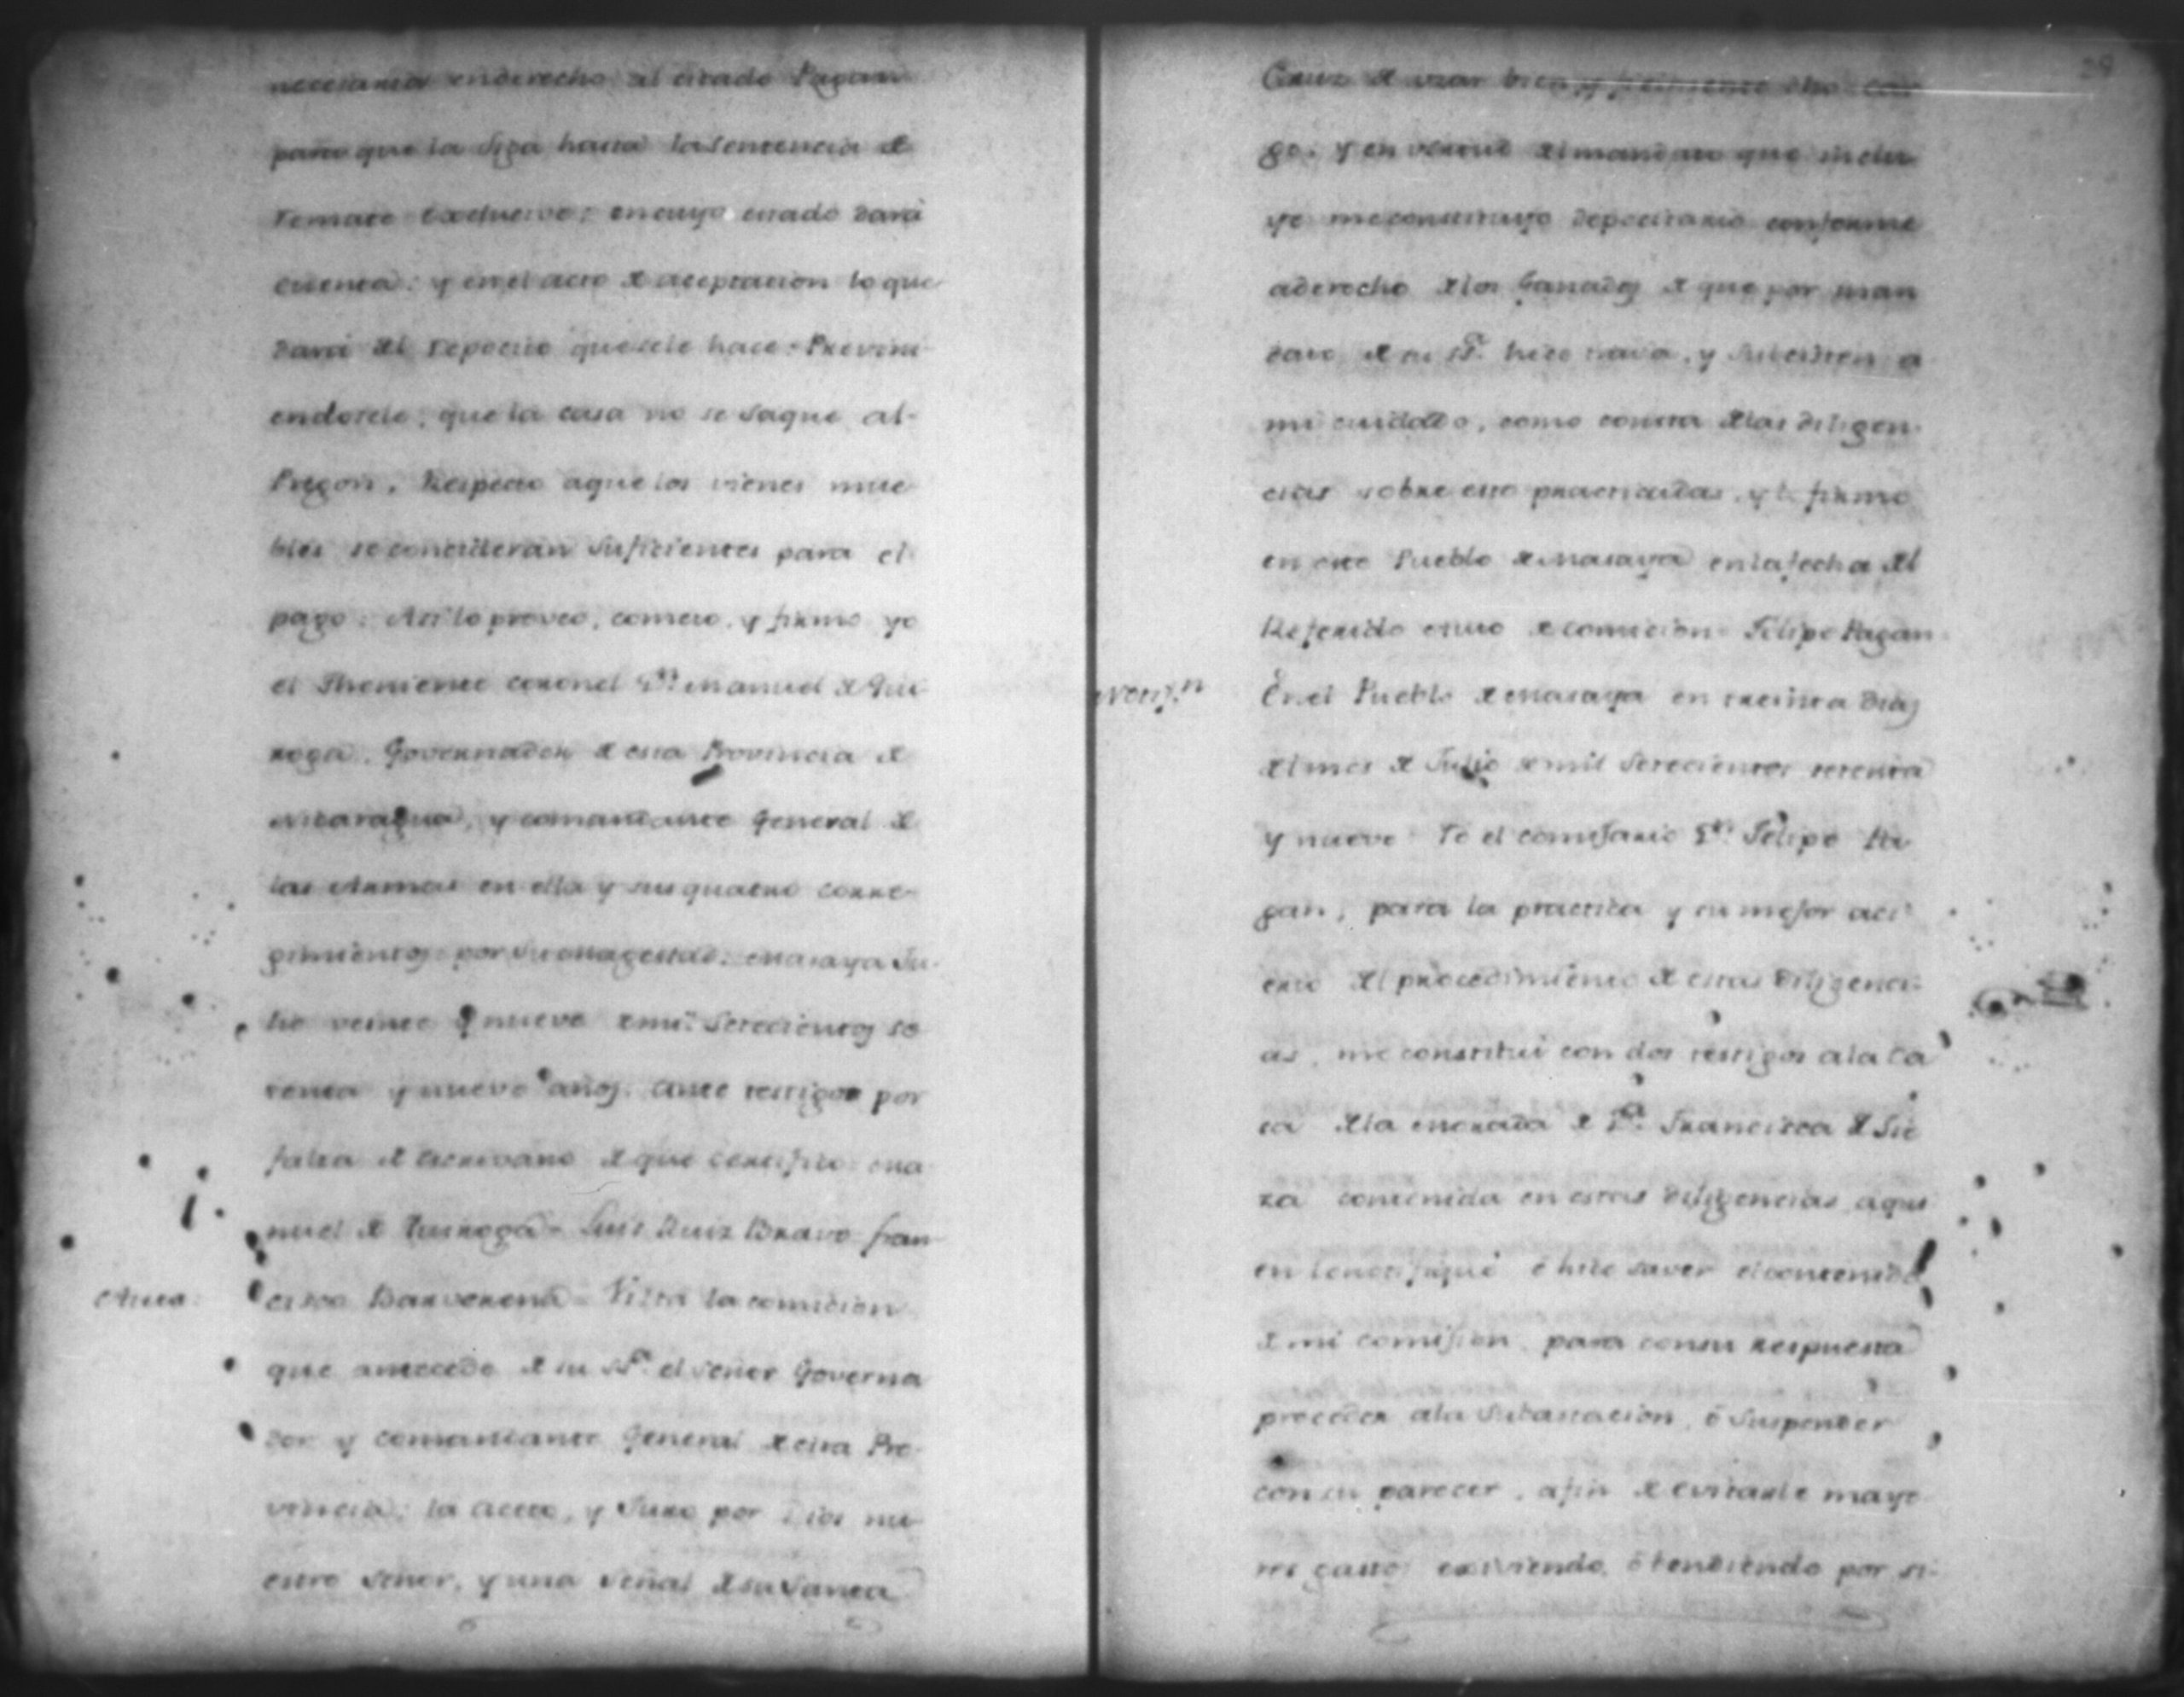 necesaria enderecho al citado Pagan
para que la siga hasta la sentencia de
Remate exclusive; en cuyo estado dará
cuenta: y en el acto de aceptacion lo que
dará del deposito que sele hace = Previni
endosele, que la casa no se saque al-
Pregon, Respecto aque los vienes mue
bles se concideran suficientes para el
pago: Asi lo proveo, cometo, y firmo yo
el Theniente coronel Dn Manuel de Qui
roga, Governador de esta Provincia de
Nicaragua, y comandante General de
las Armas en ella y sus quatro corre-
gimientos por su Magestad. Masaya Ju-
lio veinte y nueve de mil setecientos se
tenta y nueve años. Ante testigos por
falta de Escrivano de que certifico = Ma
nuel de Quiroga = Luis Ruiz Bravo = fran
cisco Barverena = Vista la comicion
que antecede de su Sª. el señor Governa
dor y comandante General de esta Pro-
vincia: la acceto, y Juro por Dios nu-
estro Señor, y una señal de su Santa
29
Cruz de usar bien, y fielmente dho car
go. y en virtud del mandato que inclu
ye me constituyo depocitario conforme
aderecho de los Ganados de que por man
dato de su Sª. hice trava, y subcisten a
mi cuidado, como consta de las diligen-
cias sobre esto practicadas, y lo firmo
en este Pueblo de Masaya en la fecha del
Referido auto de comicion = Felipe Pagan =
Notif.n
En el Pueblo de Masaya en treinta dias
del mes de Julio de mil setecientos setenta
y nueve Yo el comisario Dn. Felipe Pa
gan, para la practica y su mejor aci
erto del procedimiento de estas diligenci-
as, me constitui con dos testigos ala ca
sa de la morada de Dª. Francisca de Sie
rra contenida en estas diligencias aqui
en le notifiqué é hice saver el contenido
de mi comision, para con su respuesta
proceder ala subastacion, ó suspender
con su parecer, afin de evitarle mayo
res gastos exiviendo, ó vendiendo por si-